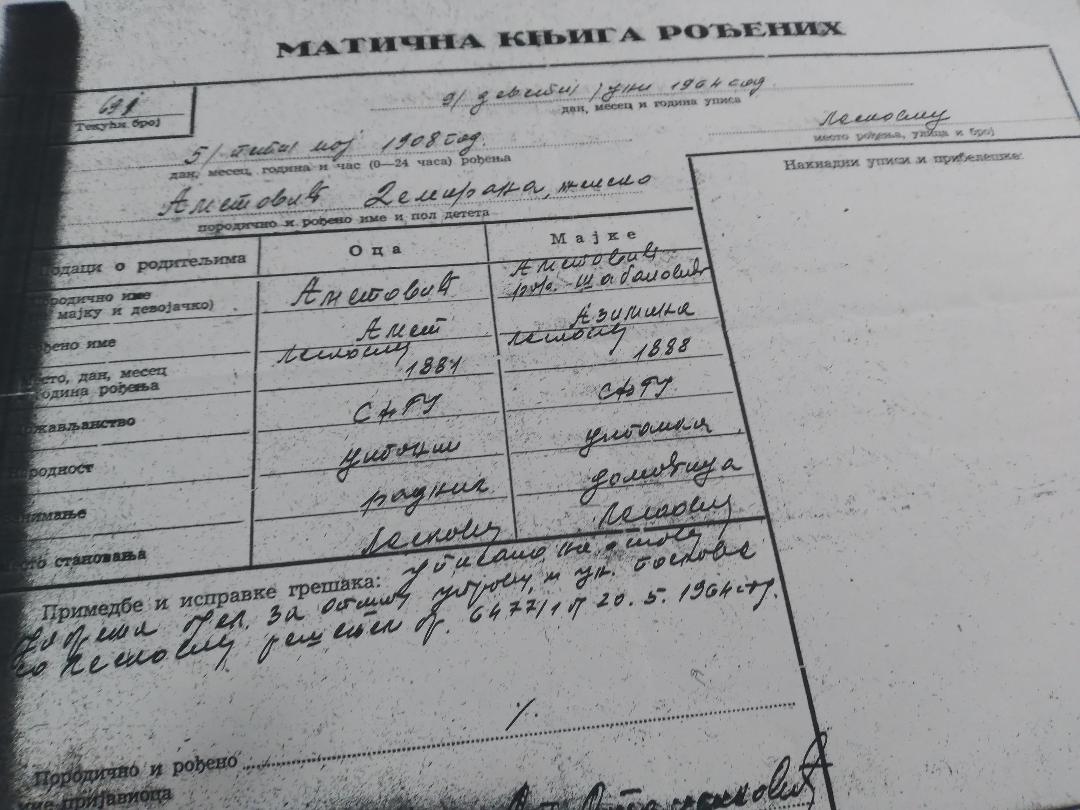 МАТИЧНА КЊИГА РОЂЕНИХ
9/ девети јуни 1964 год.
дан, месец и година уписа
Текући број
Лесковцу
место рођења, улица и број
5/ пети мај 1908 год.
дан, месец, година и час (0—24 часа) рођења
Накнадни уписи и прибелешке:
Аметовић Демирана, женско
породично и рођено име и пол детета
Подаци о родитељима Оца Мајке
Породично име
мајку и девојачко) Аметовић Аметовић
рођ. Шабановић
рођено име Амет Азимина
Место, дан, месец
година рођења Лесковцу 1881 Лесковцу 1888
Држављанство СФРЈ СФРЈ
народност
занимање радник домаћица
место становања Лесковцу Лесковцу
Примедбе и исправке грешака: уписано на основу
решења од. за општу управу и ун. послове
со Лесковцу решењем бр. 6477/1 од 20. 5. 1964 год.
%
Породично и рођено
име пријавиоца